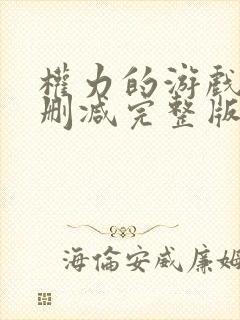 權力的游戲
删减完整版
海倫安威廉姆